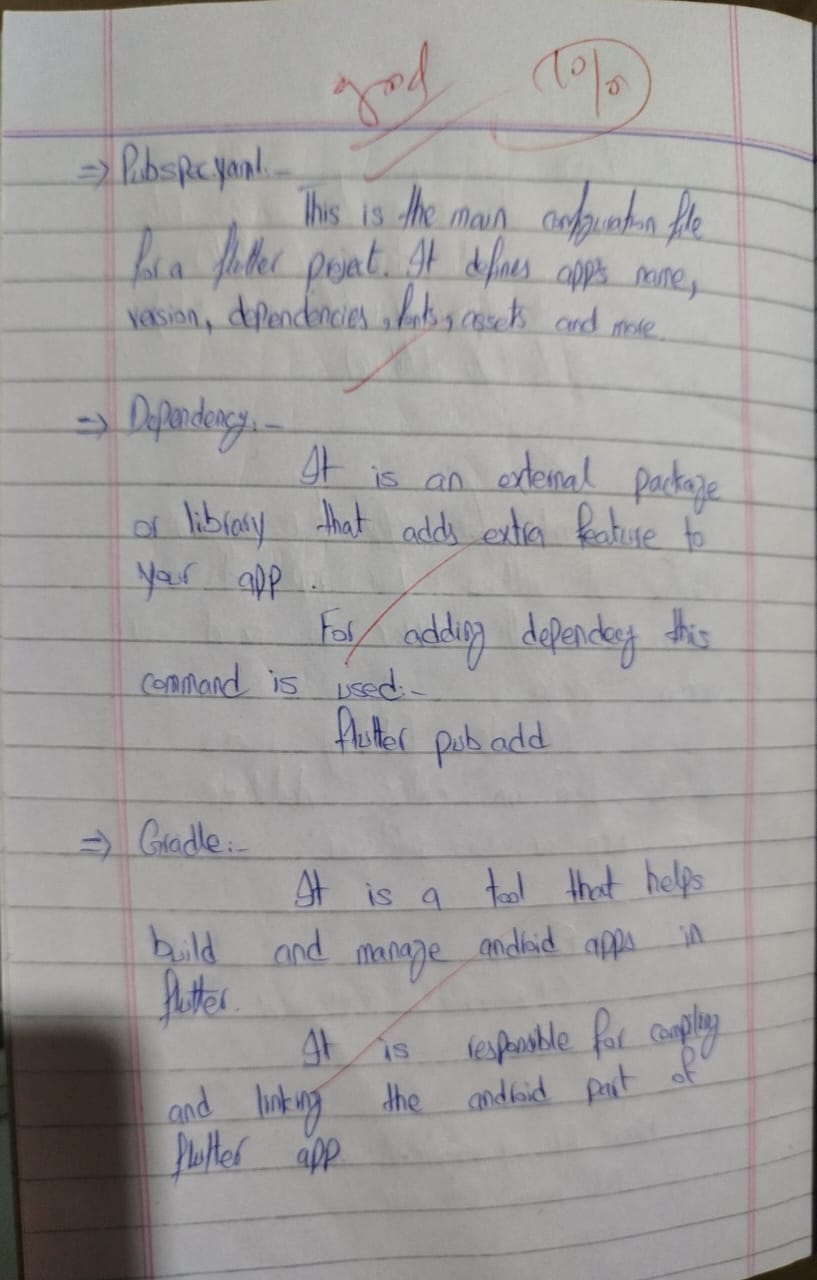 good 10/10
⇒ Pubspec yaml:-
This is the main configuration file
for a flutter project. It defines app's name,
version, dependencies, fonts, assets and more.
⇒ Dependency:-
It is an external package
or library that adds extra feature to
your app.
For adding dependecy this
command is used:-
flutter pub add
⇒ Gradle:-
It is a tool that helps
build and manage android apps in
flutter.
It is responsible for compling
and linking the android part of
flutter app.